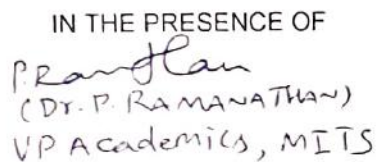 IN THE PRESENCE OF
P. Ramathan
(Dr. P. RAMANATHAN)
VP Academics, MITS